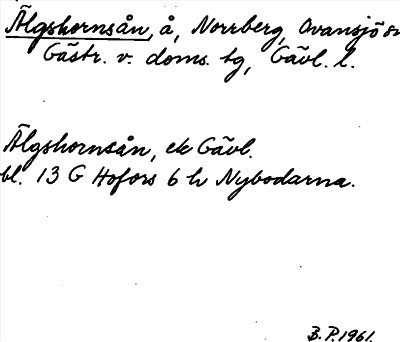 Älgshornsån, å, Norrberg, Ovansjö sn
Gästr. v. doms. tg, Gävl. l.
Älgshornsån, ek Gävl.
bl. 13 G Hofors 6 h Nybodarna.
B.P. 1961.